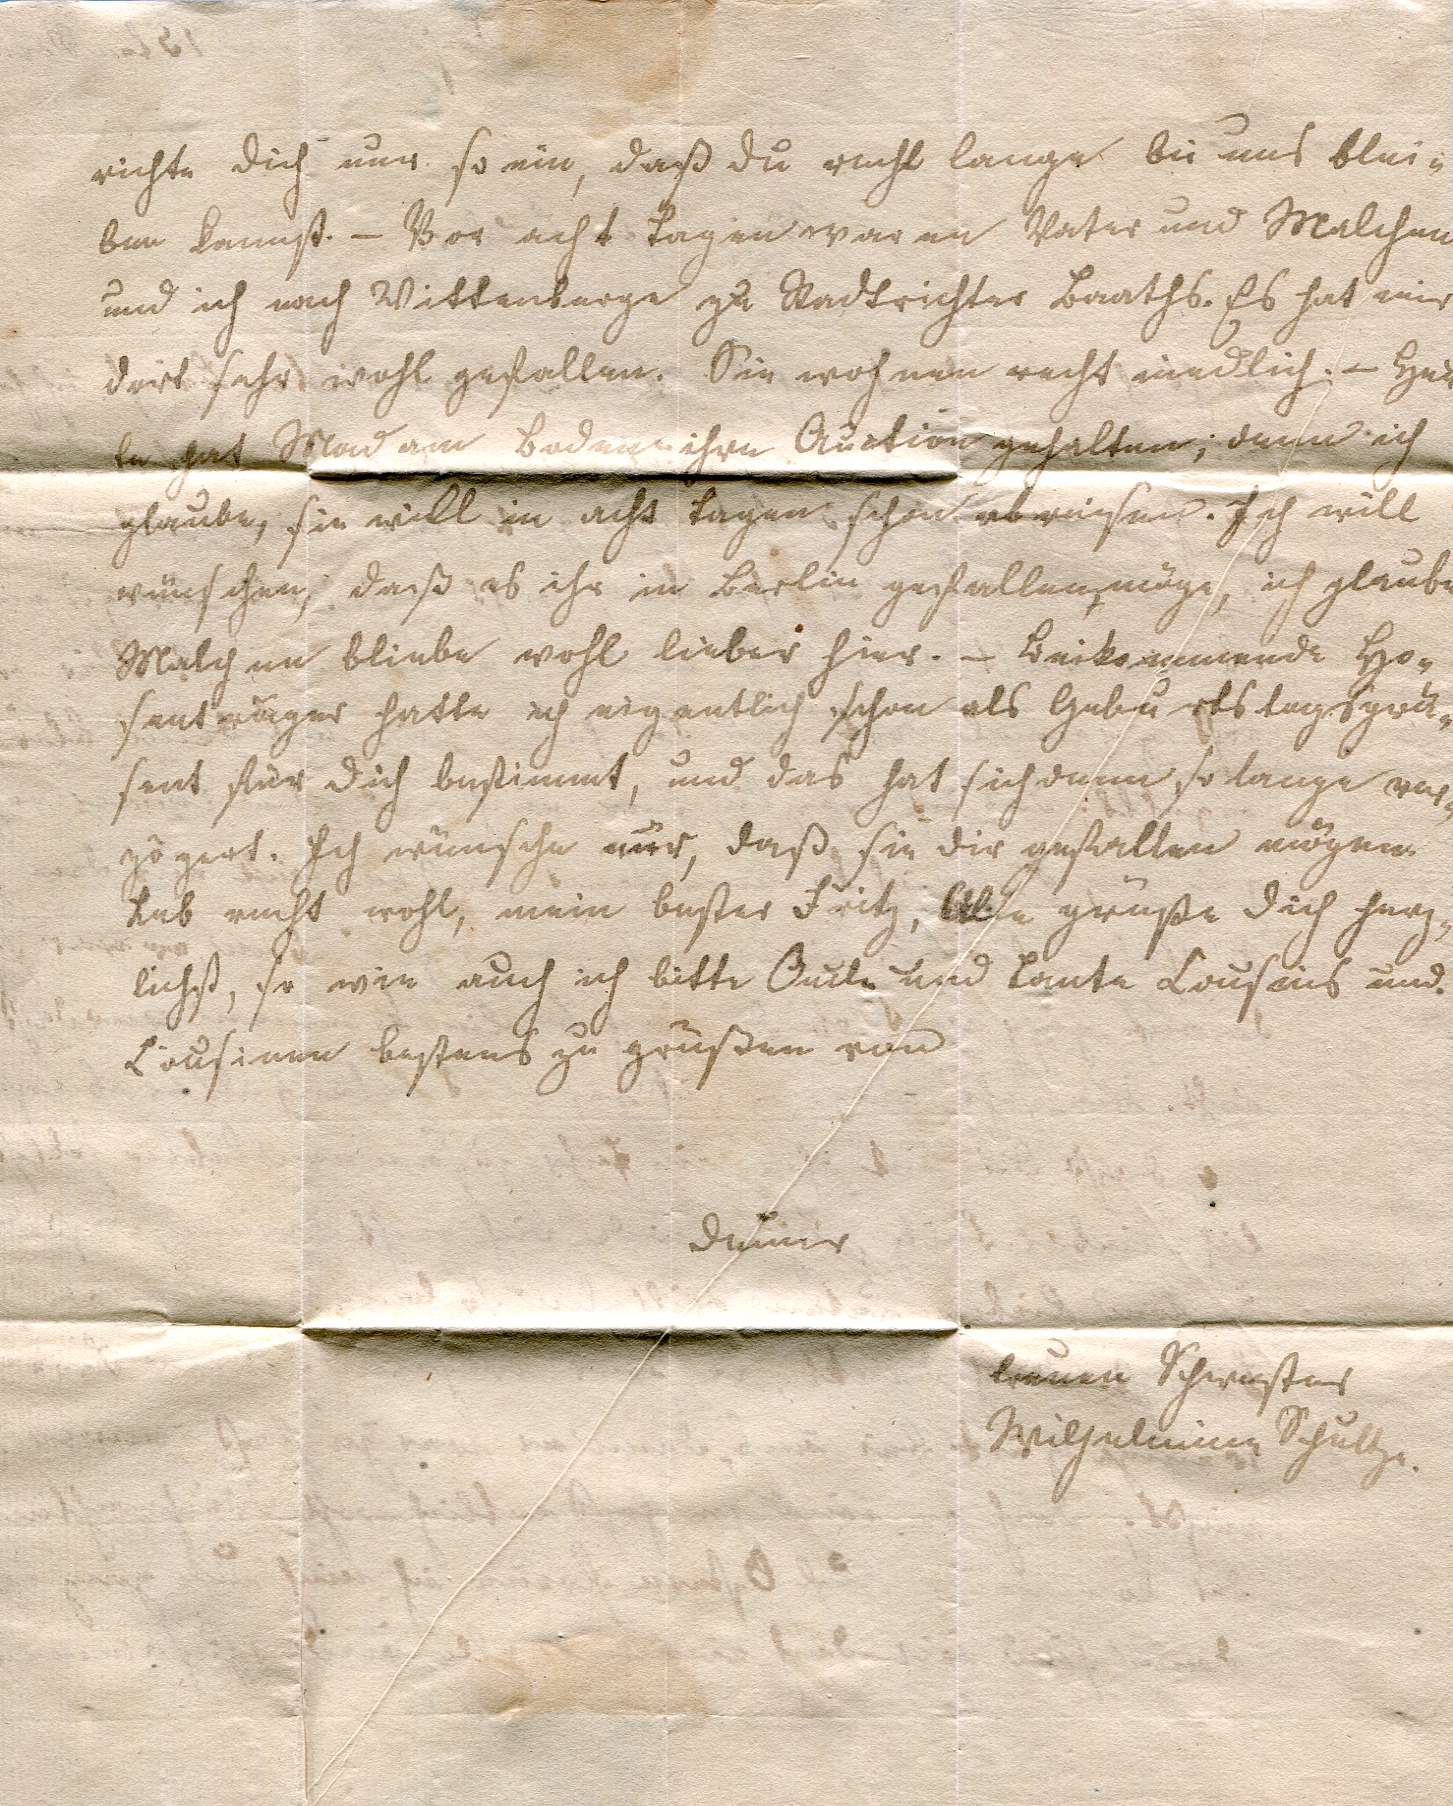 richte dich nur so ein, daß du recht lange bei uns blei-
ben kannst. – Vor acht Tagen waren Vater und Malchen
und ich nach Wittenberge zu Stadtrichter Baaths. Es hat mir
dort sehr wohl gefallen. Sie wohnen recht niedlich. – Heu
te hat Madam Boden ihre Auction gehalten; denn ich
glaube, sie will in acht Tagen schon abreisen. Ich will
wünschen, daß es ihr in Berlin gefallen möge, ich glaube
Malchen bliebe wohl lieber hier. – Beikommende Ho-
senträger hatte ich eigentlich schon als Geburtstagsprä-
sent für dich bestimmt, und das hat sich denn so lange ver-
zögert. Ich wünsche nur, daß sie dir gefallen mögen.
Leb recht wohl, mein bester Fritz, Alle grüße dich herz-
lichst, so wie auch ich bitte Onkel und Tante Cousins und
Cousinen bestens zu grüßen von
Deiner
treuen Schwester
Wilhelmine Schultze.